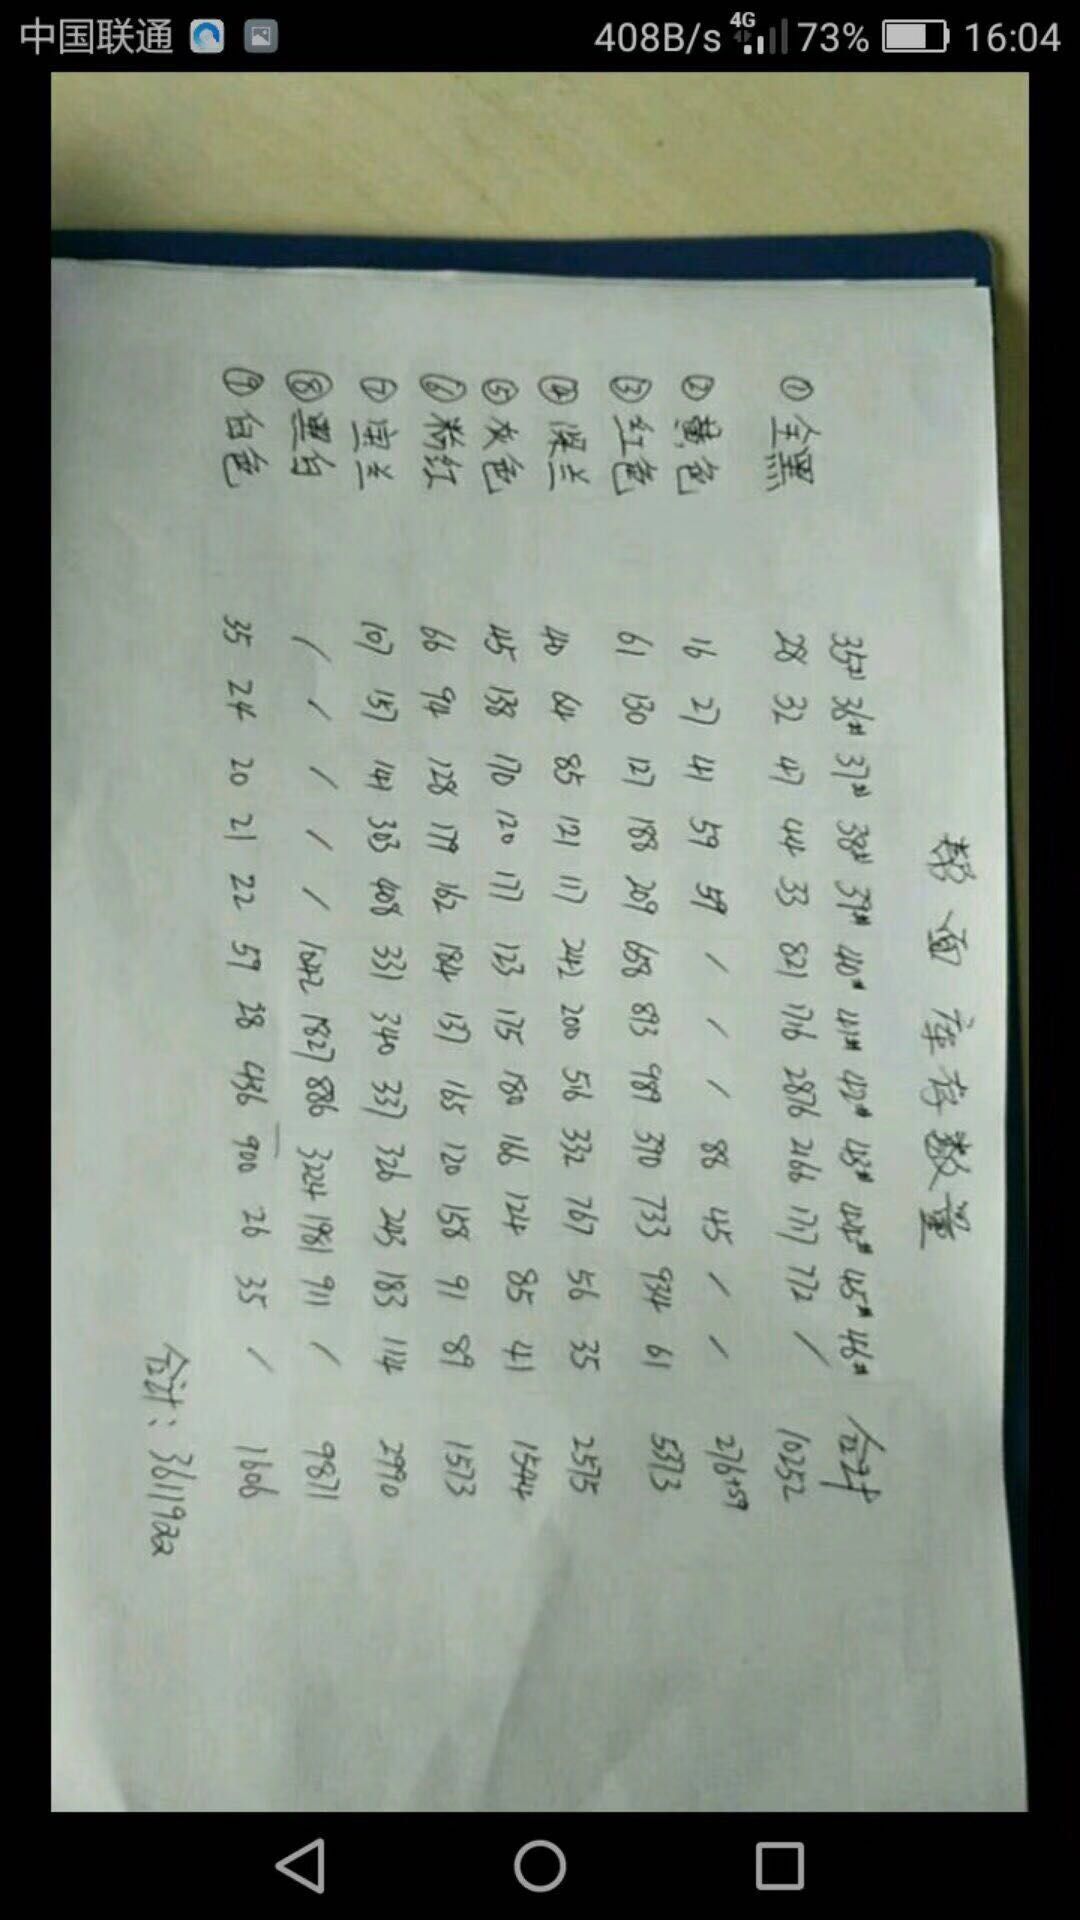 中国联通 408B/s 4G 73% 16:04
帮面库存数量
35# 36# 37# 38# 39# 40# 41# 42# 43# 44# 45# 46# 合计
① 全黑 28 32 47 44 33 821 1716 2876 2166 1717 772 / 10252
② 黄色 16 27 41 59 59 / / / 88 45 / / 276+59
③ 红色 61 130 127 188 209 658 893 989 390 733 934 61 5373
④ 深兰 40 64 85 121 117 242 200 516 332 767 56 35 2575
⑤ 灰色 45 138 170 120 177 123 175 180 166 124 85 41 1544
⑥ 粉红 66 94 128 179 162 184 137 165 120 158 91 89 1573
⑦ 宝兰 107 157 141 303 408 331 340 337 326 243 183 114 2990
⑧ 黑白 / / / / / 1042 1827 886 3224 1981 911 / 9871
⑨ 白色 35 24 20 21 22 59 38 436 900 26 35 / 1606
合计: 36119双